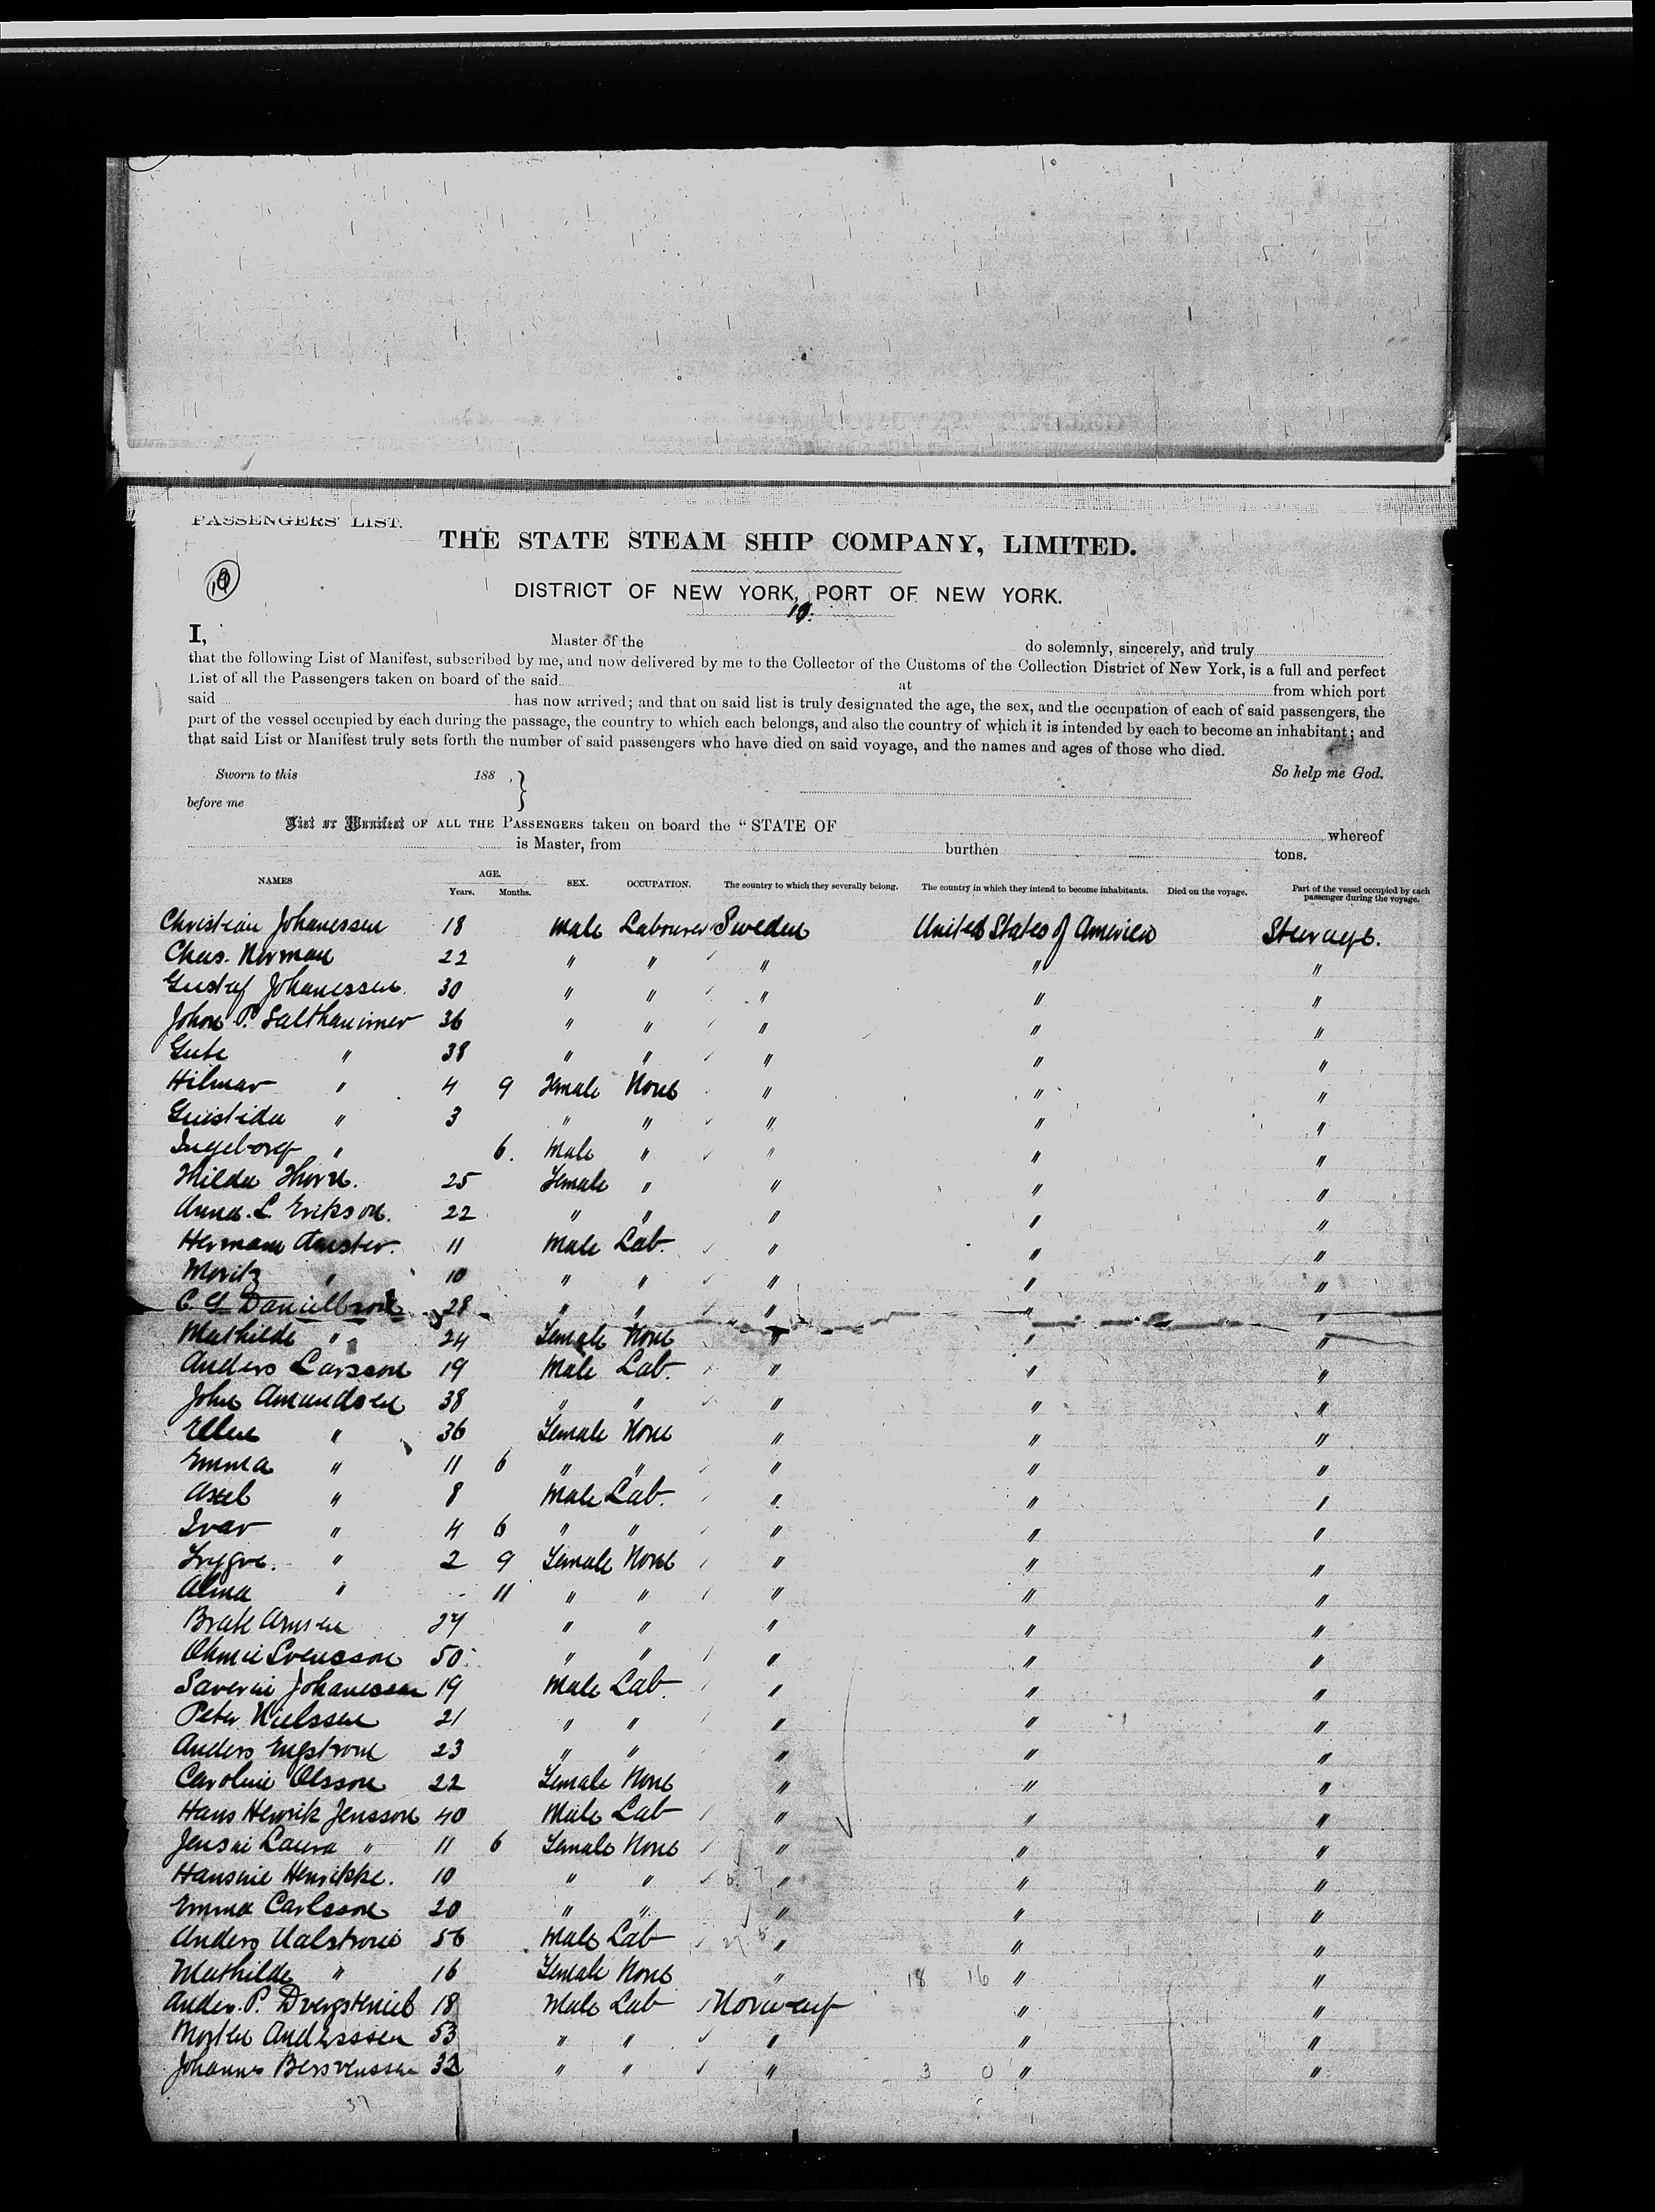 PASSENGERS' LIST.
THE STATE STEAM SHIP COMPANY, LIMITED.
19
DISTRICT OF NEW YORK, PORT OF NEW YORK.
19.
I, Master of the do solemnly, sincerely, and truly
that the following List of Manifest, subscribed by me, and now delivered by me to the Collector of the Customs of the Collection District of New York, is a full and perfect
List of all the Passengers taken on board of the said at from which port
said has now arrived; and that on said list is truly designated the age, the sex, and the occupation of each of said passengers, the
part of the vessel occupied by each during the passage, the country to which each belongs, and also the country of which it is intended by each to become an inhabitant; and
that said List or Manifest truly sets forth the number of said passengers who have died on said voyage, and the names and ages of those who died.
Sworn to this 188 , } So help me God.
before me
List or Manifest OF ALL THE PASSENGERS taken on board the "STATE OF whereof
is Master, from burthen tons.
NAMES AGE. Years. Months. SEX. OCCUPATION. The country to which they severally belong. The country in which they intend to become inhabitants. Died on the voyage. Part of the vessel occupied by each passenger during the voyage.
Christian Johanessen 18 Male Labourer Sweden United States of America Steerage.
Chas. Norman 22 " " " " "
Gustaf Johanessen 30 " " " " "
John P. Salthammer 36 " " " " "
" 38 " " " " "
Hilmar " 4 9 Female None " " "
" 3 " " " " "
Ingeborg " 6. Male " " " "
Hilda Thorn. 25 Female " " " "
Anna. L. Erikson. 22 " " " " "
Hermann 11 Male Lab. " " "
Moritz " 10 " " " " "
C. G. Danielson 28 " " " " "
Mathilde " 24 Female None " " "
Anders Larsson 19 Male Lab. " " "
John Amundsen 38 " " " " "
Ellen " 36 Female None " " "
Emma " 11 6 " " " " "
Axel " 8 Male Lab. " " "
Ivar " 4 6 " " " " "
Trygve. " 2 9 Female None " " "
Alma " 11 " " " " "
27 " " " " "
Svensson 50 " " " " "
Johanessen 19 Male Lab. " " "
Peter Nielssen 21 " " " " "
Anders Engstrom 23 " " " " "
Caroline Olsson 22 Female None " " "
Hans Henrik Jensson 40 Male Lab " " "
Laura " 11 6 Female None " " "
Hansine Henrikke. 10 " " " " "
Emma Carlsson 20 " " " " "
Anders 56 Male Lab " " "
Mathilde " 16 Female None " 18 16 " "
Ander. P. 18 Male Lab Norway " "
Morten Anderssen 53 " " " " "
Johannes 32 " " " 3 0 " "
37